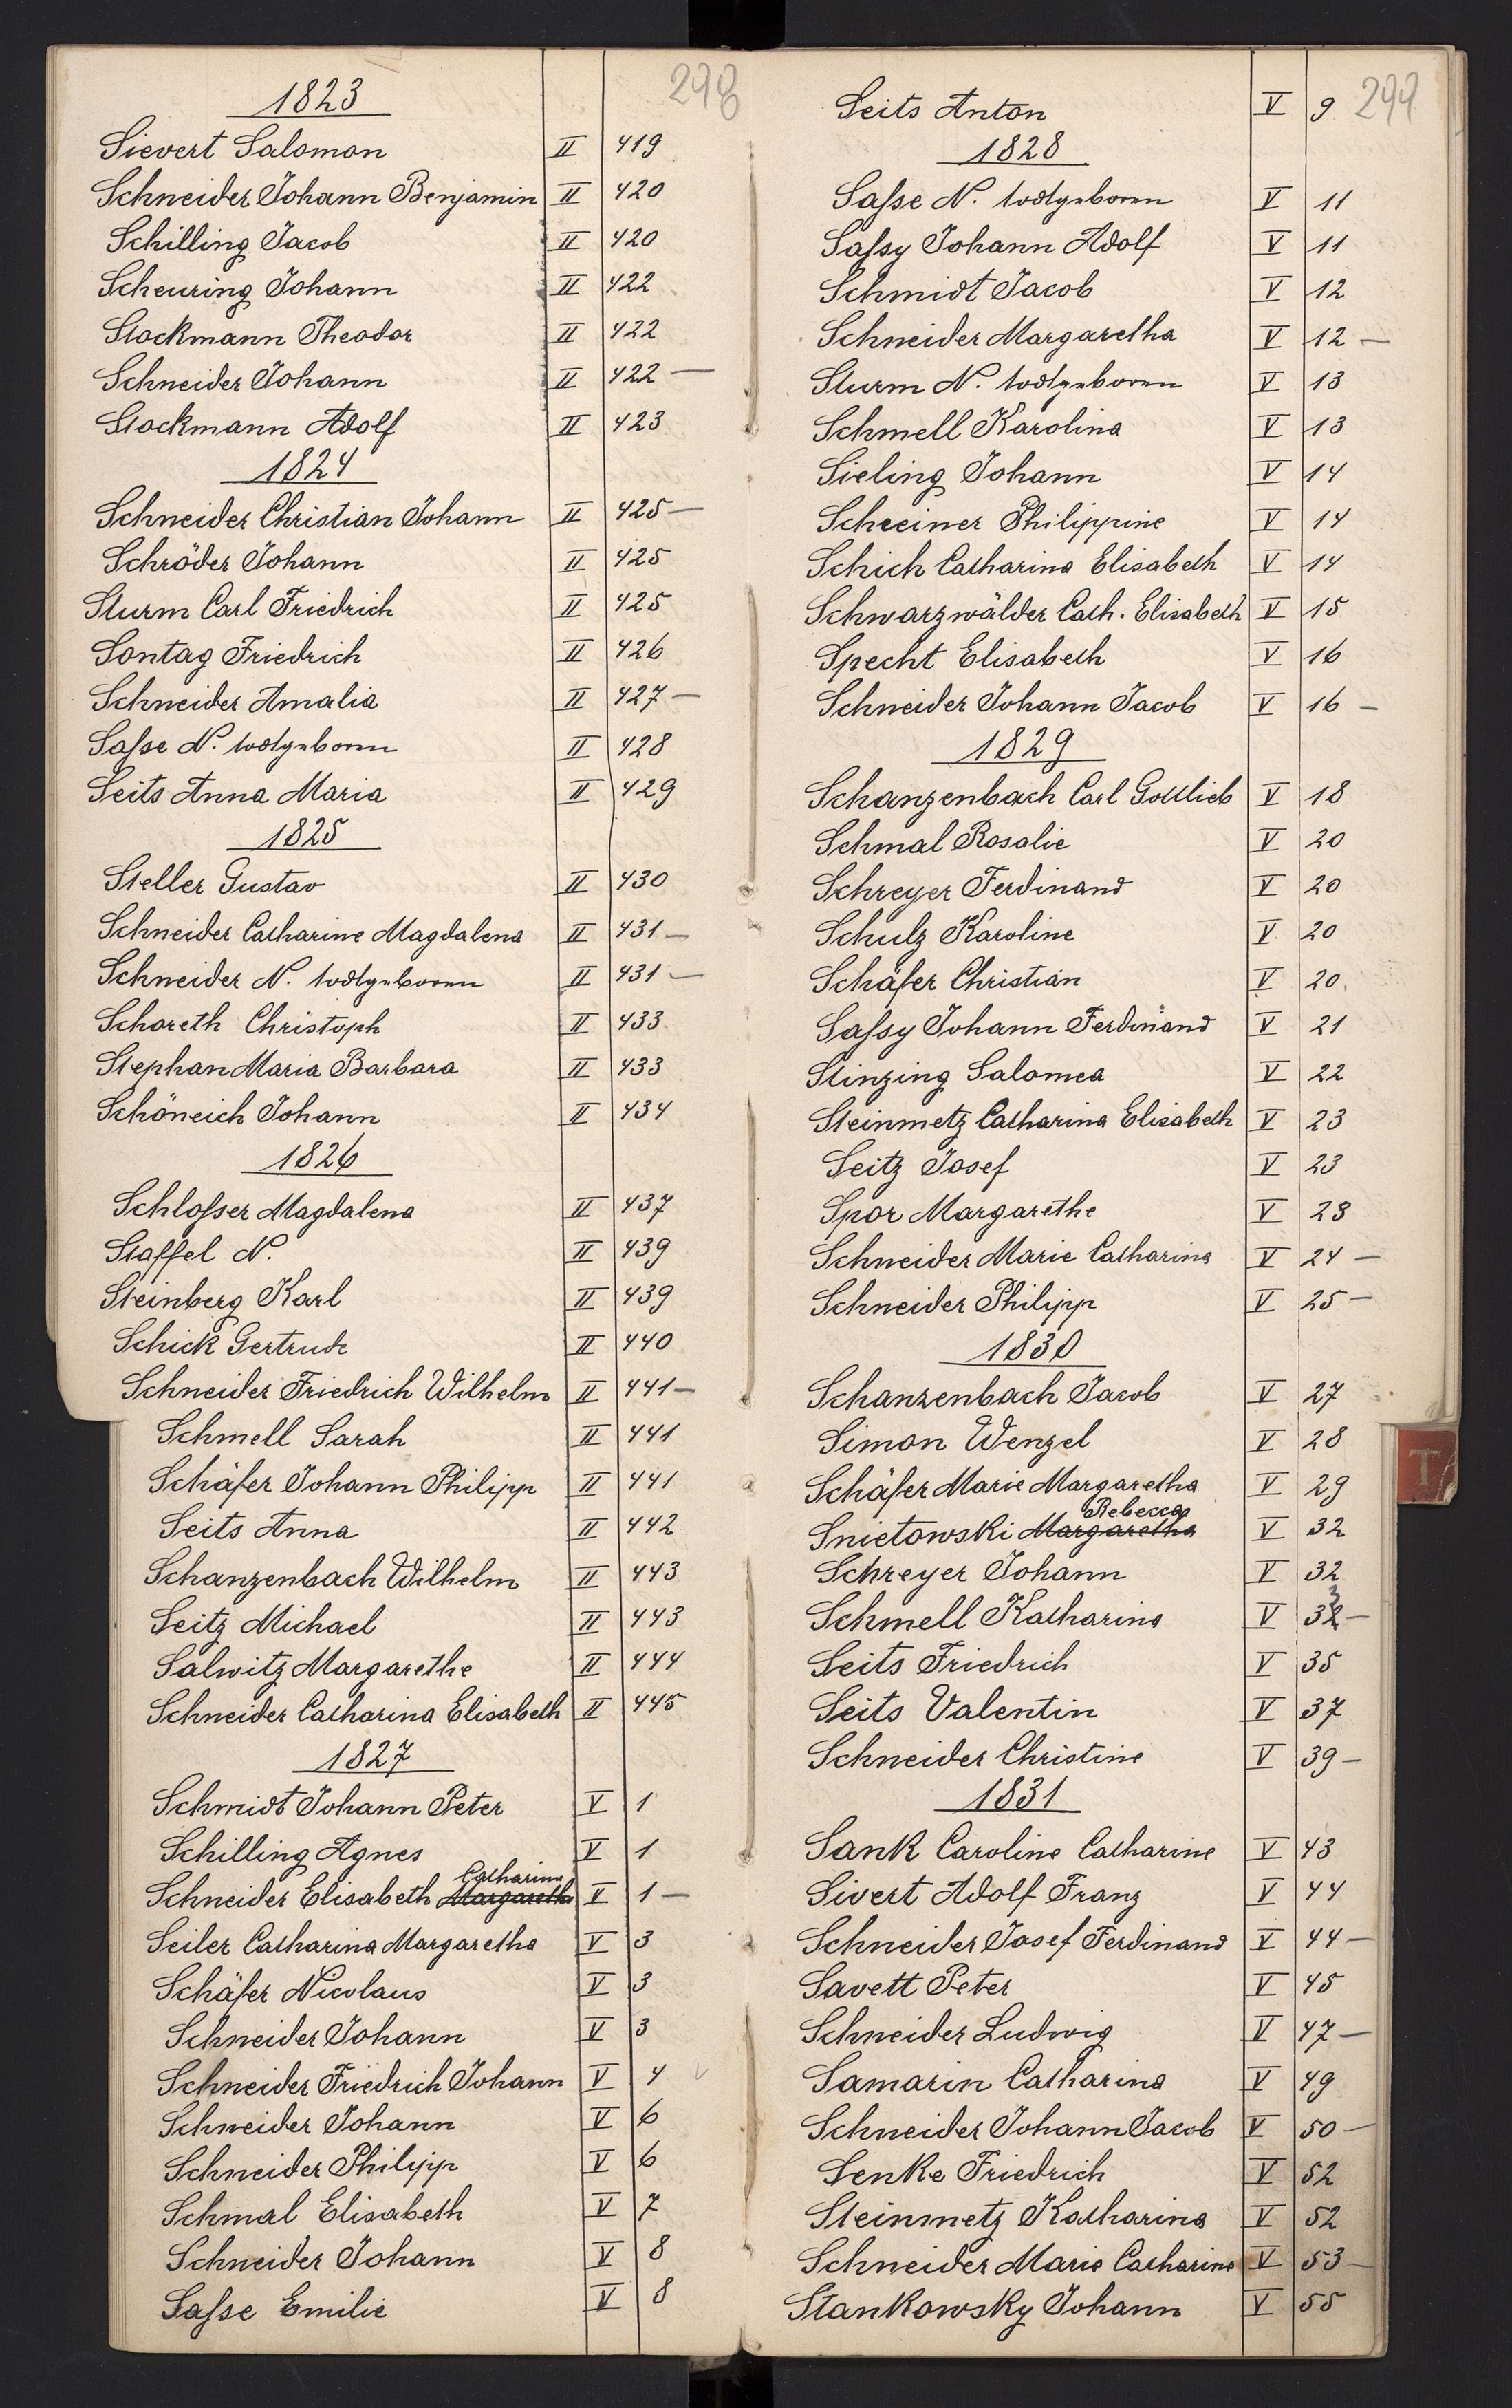 298
1823
Sievert Salomon II 419
Schneider Johann Benjamin II 420
Schilling Jacob II 420
Scheuring Johann II 422
Stockmann Theodor II 422
Schneider Johann II 422 —
Stockmann Adolf II 423
1824
Schneider Christian Johann II 425 —
Schröder Johann II 425
Sturm Carl Friedrich II 425
Sontag Friedrich II 426
Schneider Amalia II 427 —
Saſse N. todtgeboren II 428
Seits Anna Maria II 429
1825
Steller Gustav II 430
Schneider Catharine Magdalena II 431 —
Schneider N. todtgeboren II 431 —
Schareth Christoph II 433
Stephan Maria Barbara II 433
Schöneich Johann II 434
1826
Schloſser Magdalena II 437
Staffel N. II 439
Steinberg Karl II 439
Schick Gertrude II 440
Schneider Friedrich Wilhelm II 441 —
Schmell Sarah II 441
Schäfer Johann Philipp II 441
Seits Anna II 442
Schanzenbach Wilhelm II 443
Seitz Michael II 443
Salwitz Margarethe II 444
Schneider Catharina Elisabeth II 445
1827
Schmidt Johann Peter V 1
Schilling Agnes V 1
Catharina
Schneider Elisabeth Margareth V 1 —
Seiler Catharina Margaretha V 3
Schäfer Nicolaus V 3
Schneider Johann V 3
Schneider Friedrich Johann V 4
Schneider Johann V 6
Schneider Philipp V 6
Schmal Elisabeth V 7
Schneider Johann V 8
Saſse Emilie V 8
299
Seits Anton V 9
1828
Saſse N. todtgeboren V 11
Saſsy Johann Adolf V 11
Schmidt Jacob V 12
Schneider Margaretha V 12 —
Sturm N. todtgeboren V 13
Schmell Karolina V 13
Sieling Johann V 14
Schreiner Philippine V 14
Schich Catharina Elisabeth V 14
Schwarzwälder Cath. Elisabeth V 15
Specht Elisabeth V 16
Schneider Johann Jacob V 16 —
1829
Schanzenbach Carl Gottlieb V 18
Schmal Rosalie V 20
Schreyer Ferdinand V 20
Schulz Karoline V 20
Schäfer Christian V 20
Saſsy Johann Ferdinand V 21
Stinzing Salomea V 22
Steinmetz Catharina Elisabeth V 23
Seitz Josef V 23
Spor Margarethe V 23
Schneider Marie Catharina V 24 —
Schneider Philipp V 25 —
1830
Schanzenbach Jacob V 27
Simon Wenzel V 28
Schäfer Marie Margaretha V 29
Rebecca
Snietowski Margaretha V 32
Schreyer Johann V 32
3
Schmell Katharina V 32 —
Seits Friedrich V 35
Seits Valentin V 37
Schneider Christine V 39 —
1831
Sank Caroline Catharine V 43
Sivert Adolf Franz V 44
Schneider Josef Ferdinand V 44 —
Savett Peter V 45
Schneider Ludwig V 47 —
Samarin Catharina V 49
Schneider Johann Jacob V 50 —
Senke Friedrich V 52
Steinmetz Katharina V 52
Schneider Marie Catharine V 53 —
Stankowsky Johann V 55
T